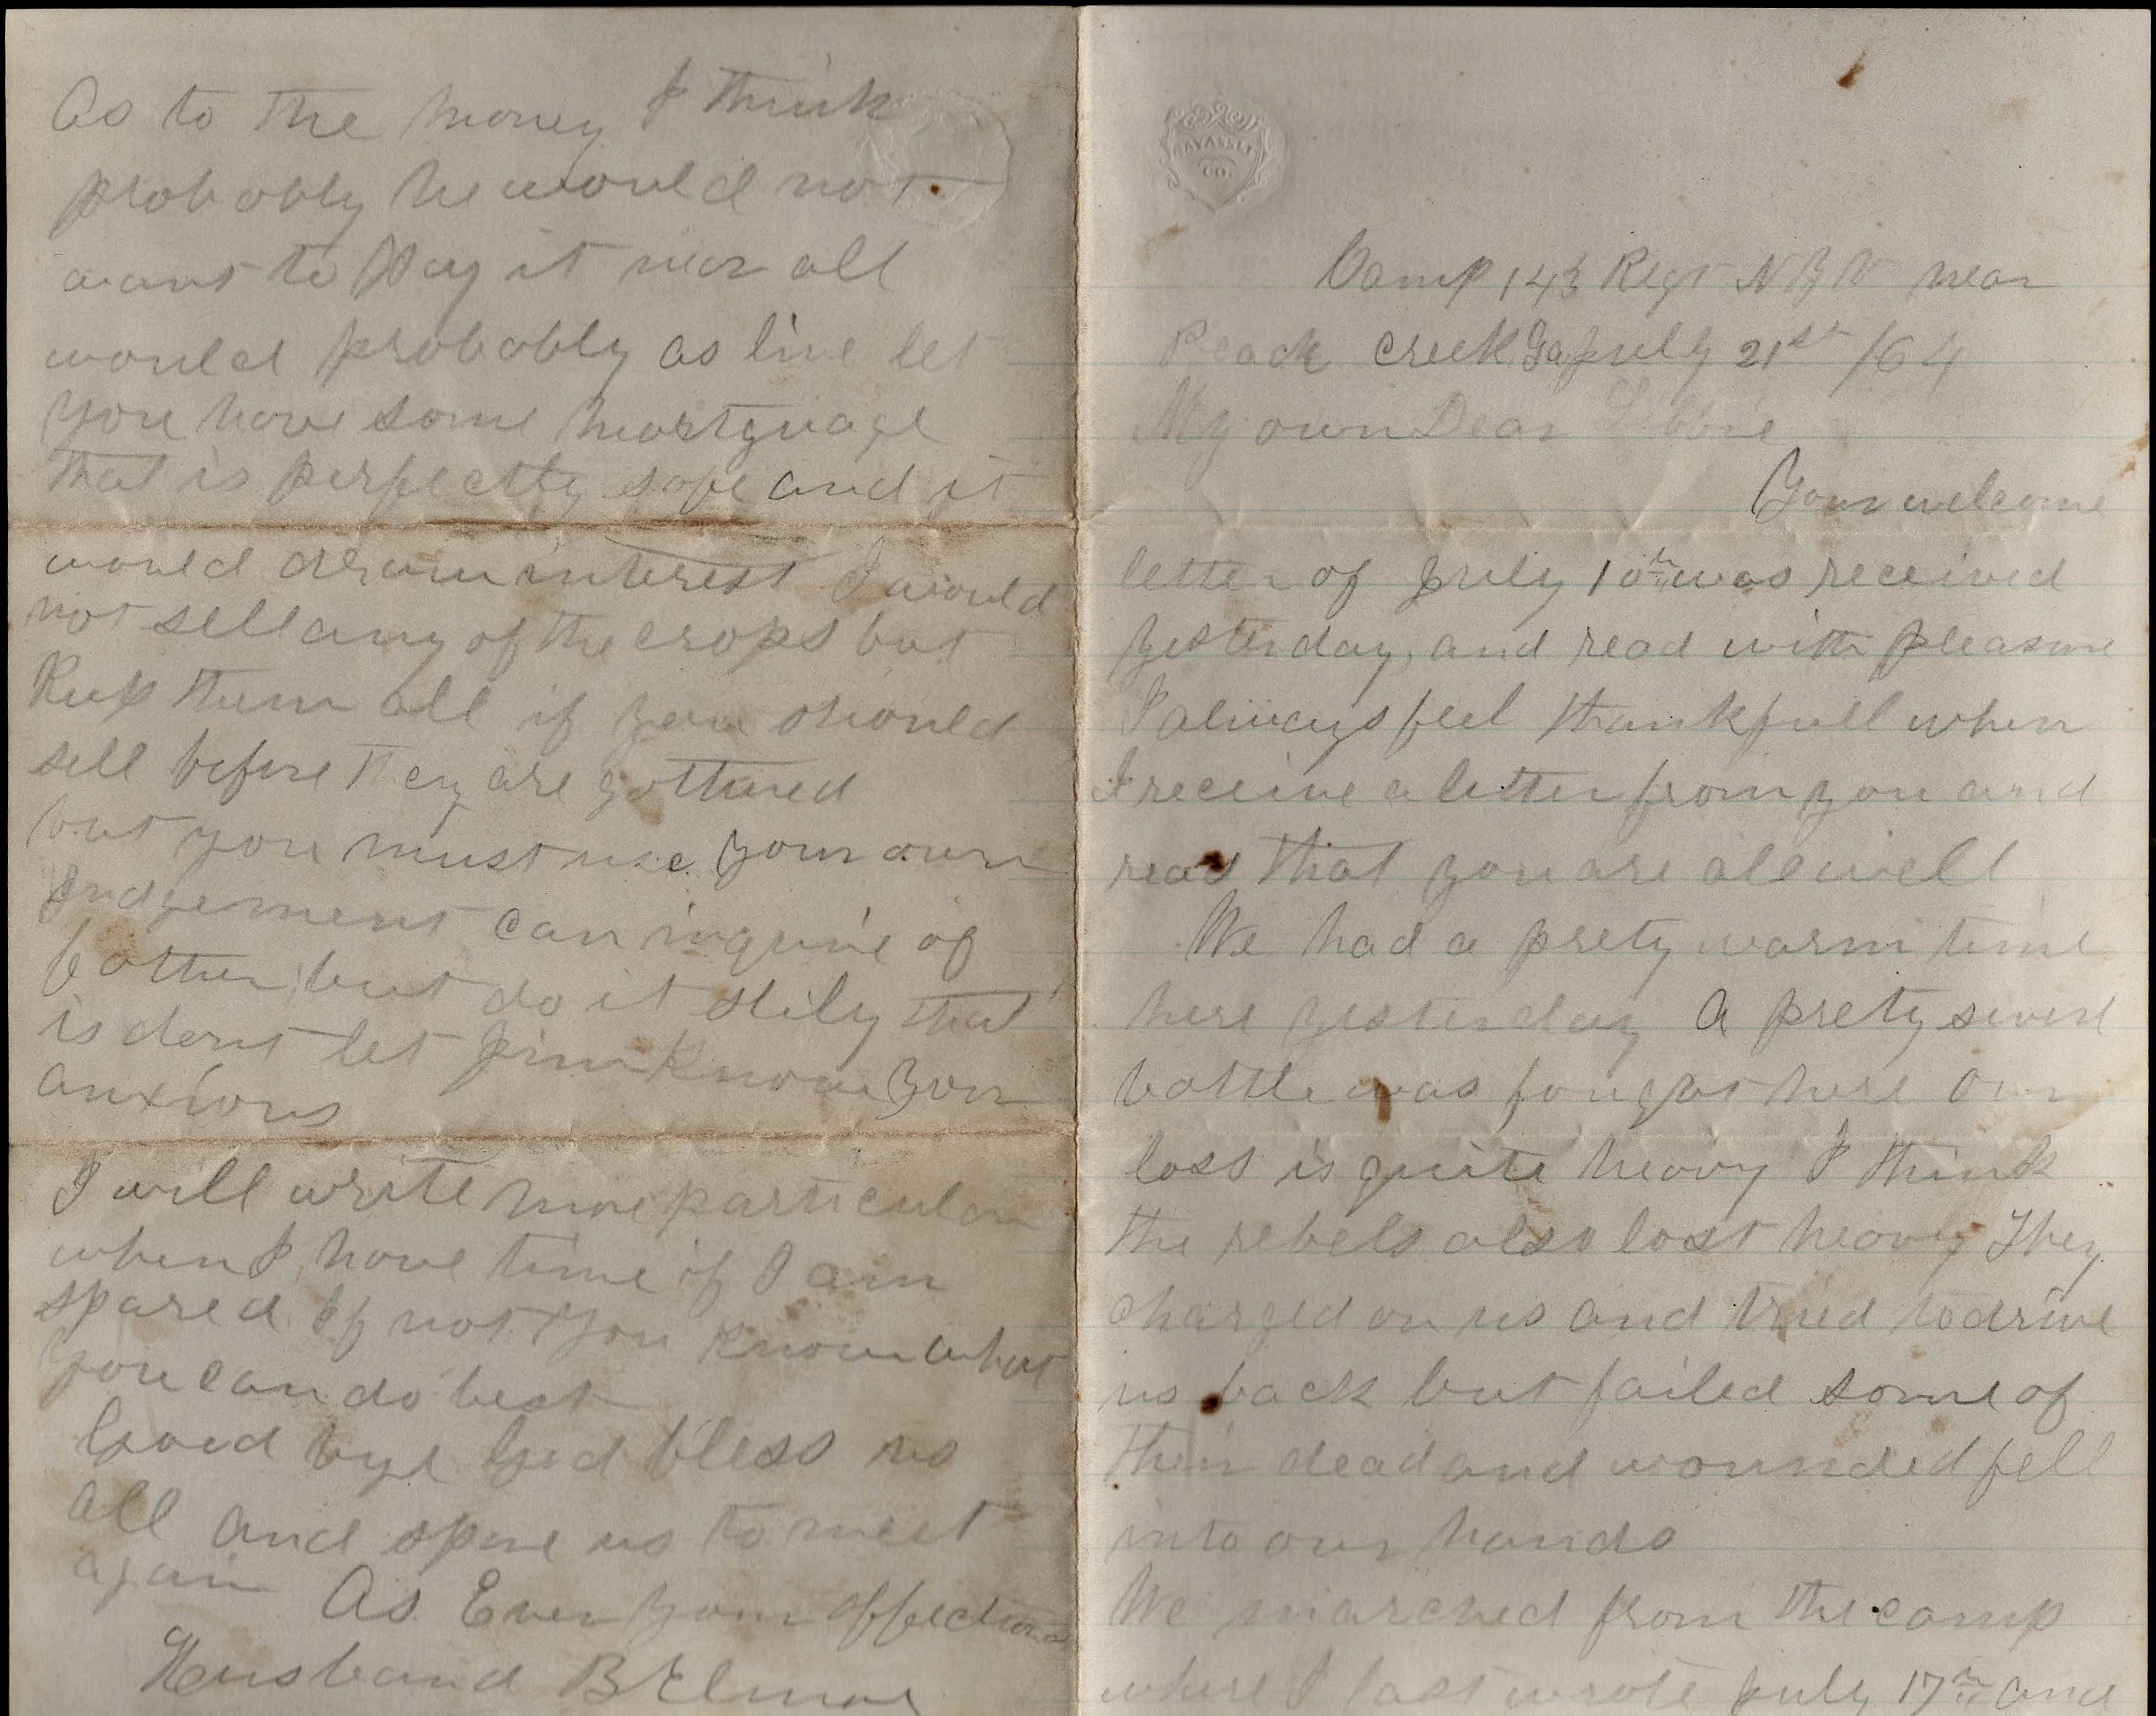 BAVASSET
CO.
Camp 143 Regt N Y V near
Peach Creek Ga July 21st /64
My own Dear Libbie
Your welcome
letter of July 10th was received
yesterday, and read with pleasure
I always feel thankfull when
I receive a letter from you and
read that you are all well
We had a prety warm time
here yesterday A prety severe
battle was fought here Our
loss is quite heavy I think
the rebels also lost heavy They
charged on us and tried to drive
us back but failed some of
their dead and wounded fell
into our hands
We marched from the camp
where I last wrote July 17th and
As to the money I think
probably he would not
want to Pay it nor all
would probably as live let
you have some mortguage
that is perfectly safe and it
would draw interest I would
not sell any of the crops but
Keep them all if you should
sell before they are gathered
but you must use your own
Judgement can inquire of
father, but do it slily that
is dont let Jim Know you
anxious
I will write more particular
when I have time if I am
spared If not you know what
you can do best
Good bye God bless us
all and spare us to meet
again As Ever your affectiona
Husband B Elmore